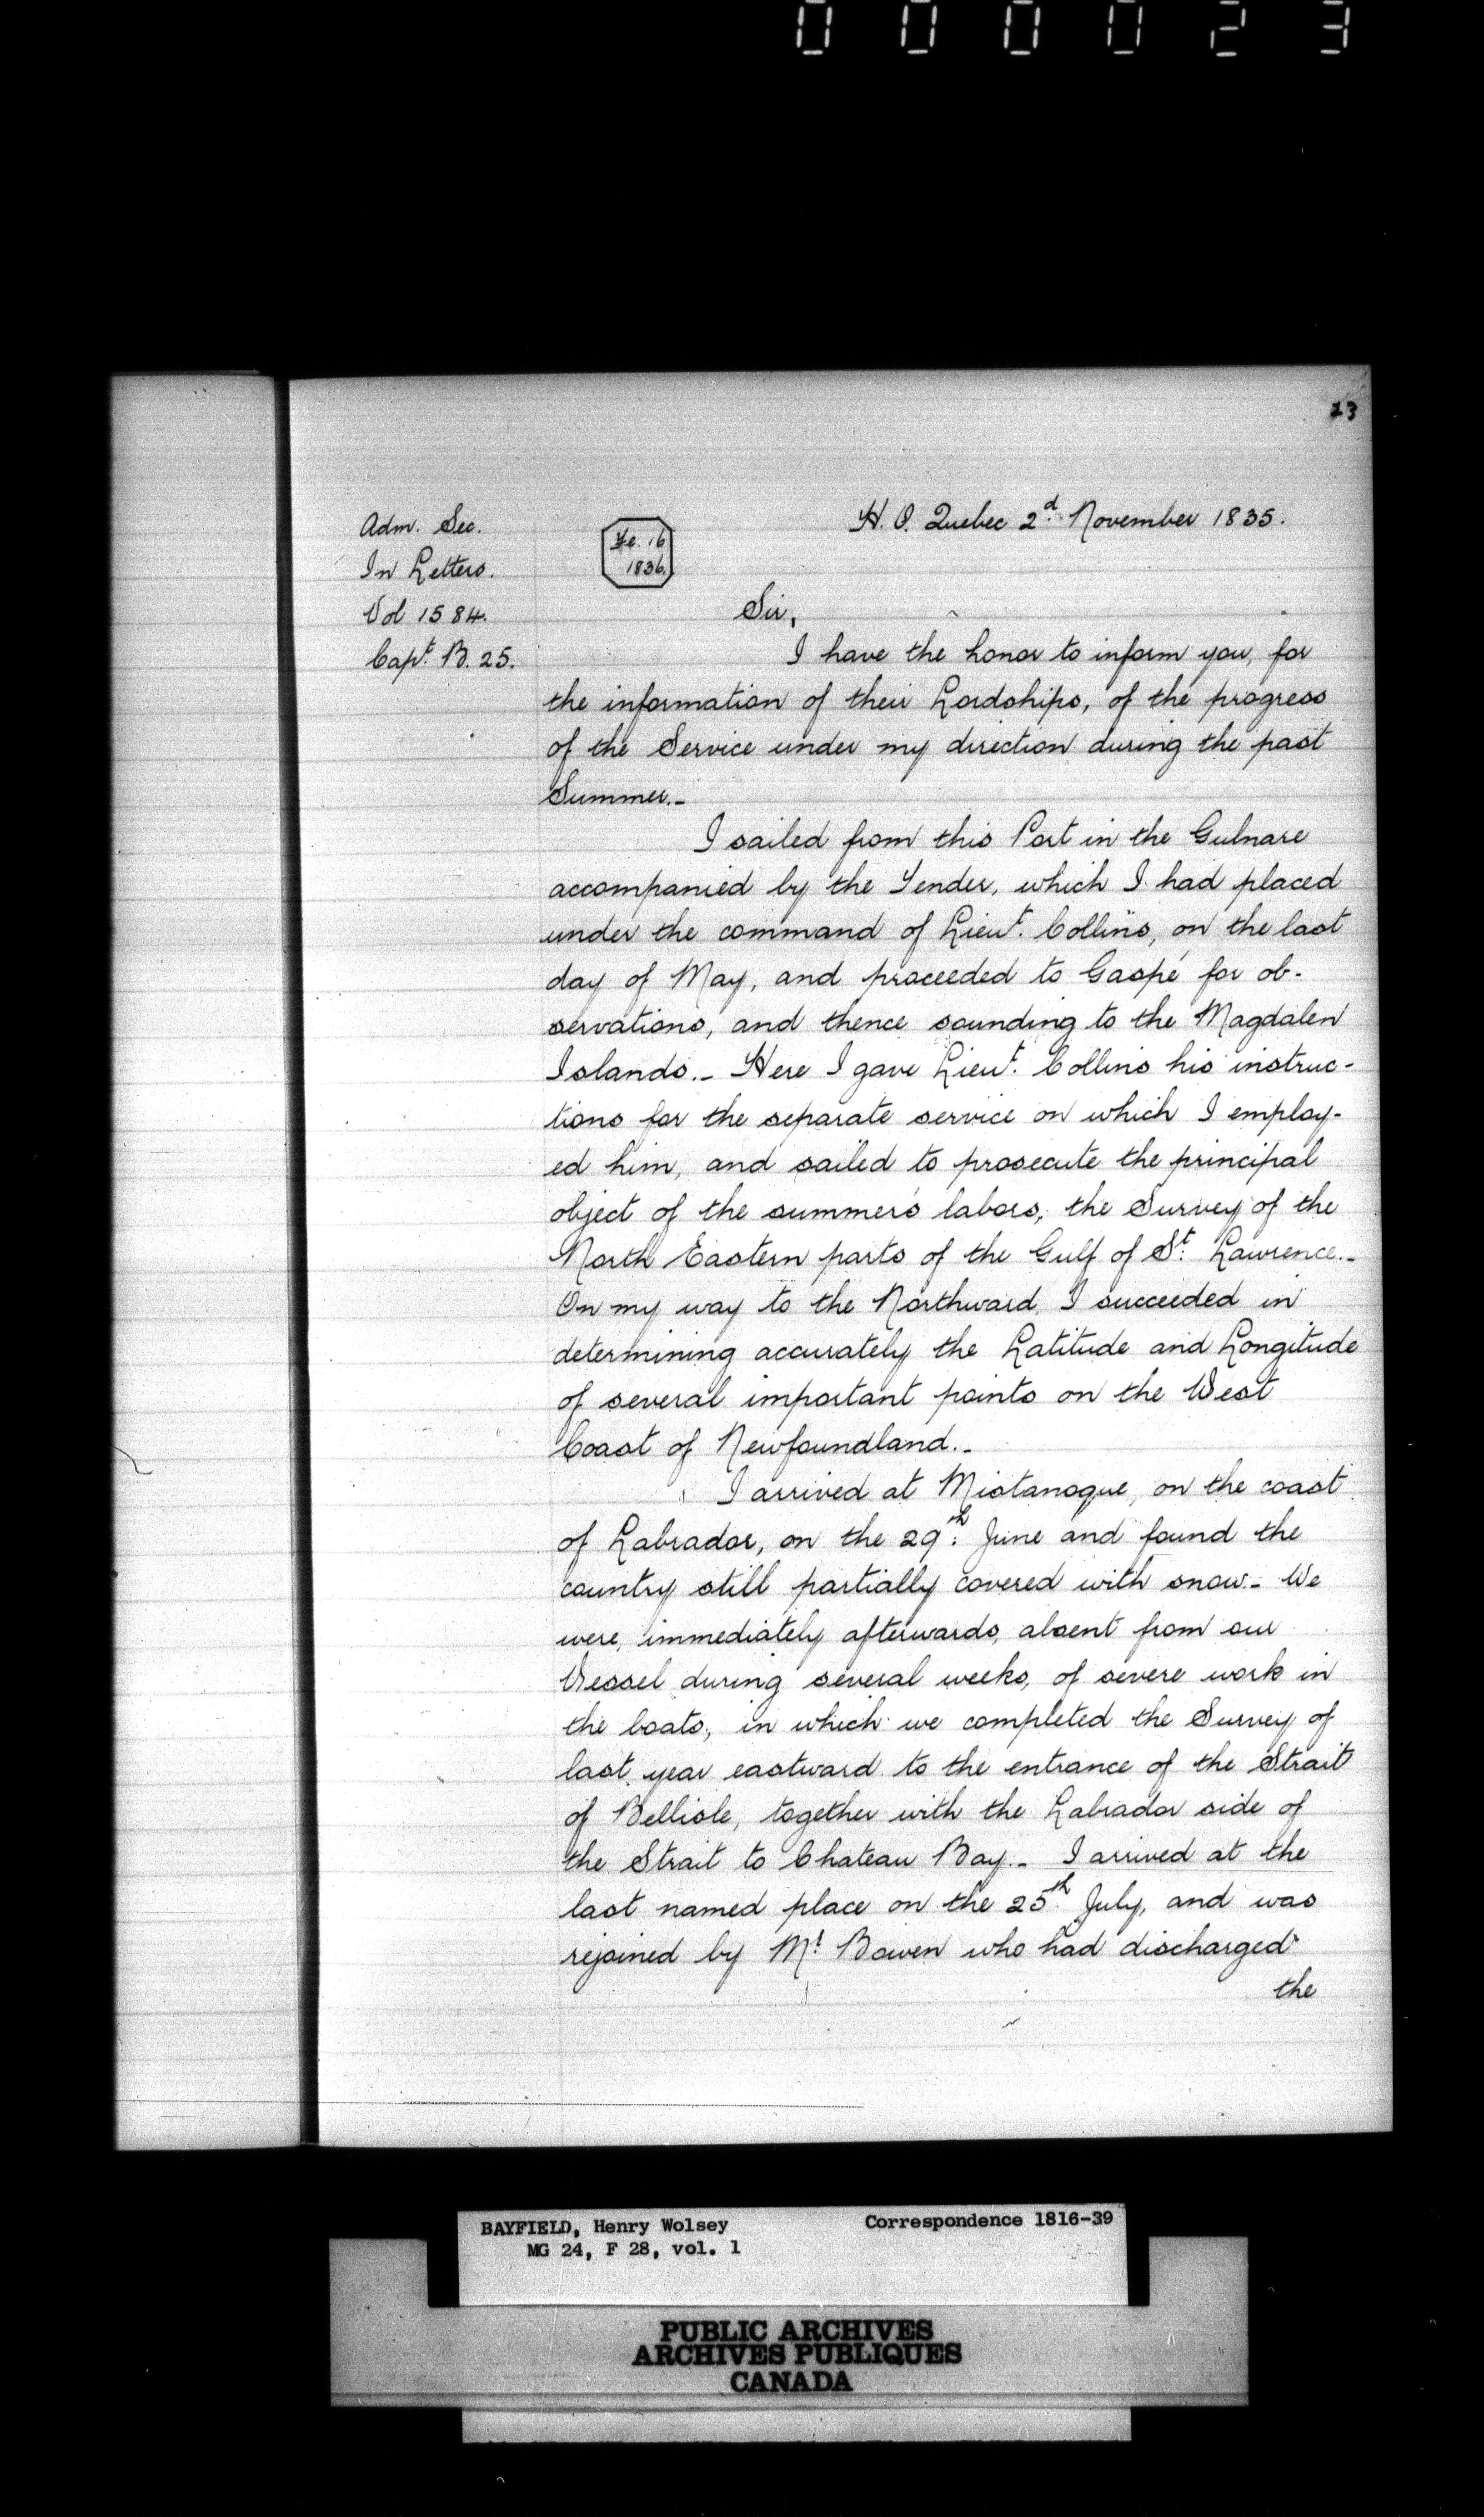 000023
23
Adm. Sec.
In Letters.
Vol 1584.
Capt. B. 25.
Fe. 16
1836.
H. O. Quebec 2d. November 1835.
Sir,
I have the honor to inform you, for
the information of their Lordships, of the progress
of the Service under my direction during the past
Summer.-
I sailed from this Port in the Gulnare
accompanied by the Tender, which I had placed
under the command of Lieut. Collins, on the last
day of May, and proceeded to Gaspé for ob-
servations, and thence sounding to the Magdalen
Islands.- Here I gave Lieut. Collins his instruc-
tions for the separate service on which I employ-
ed him, and sailed to prosecute the principal
object of the summer's labors, the Survey of the
North Eastern parts of the Gulf of St. Lawrence.-
On my way to the Northward I succeeded in
determining accurately the Latitude and Longitude
of several important points on the West
Coast of Newfoundland.-
I arrived at Mistanoque, on the coast
of Labrador, on the 29th. June and found the
country still partially covered with snow.- We
were, immediately afterwards, absent from our
Vessel during several weeks, of severe work in
the boats, in which we completed the Survey of
last year eastward to the entrance of the Strait
of Bellisle, together with the Labrador side of
the Strait to Chateau Bay.- I arrived at the
last named place on the 25th. July, and was
rejoined by Mr. Bowen who had discharged
the
BAYFIELD, Henry Wolsey Correspondence 1816-39
MG 24, F 28, vol. 1
PUBLIC ARCHIVES
ARCHIVES PUBLIQUES
CANADA